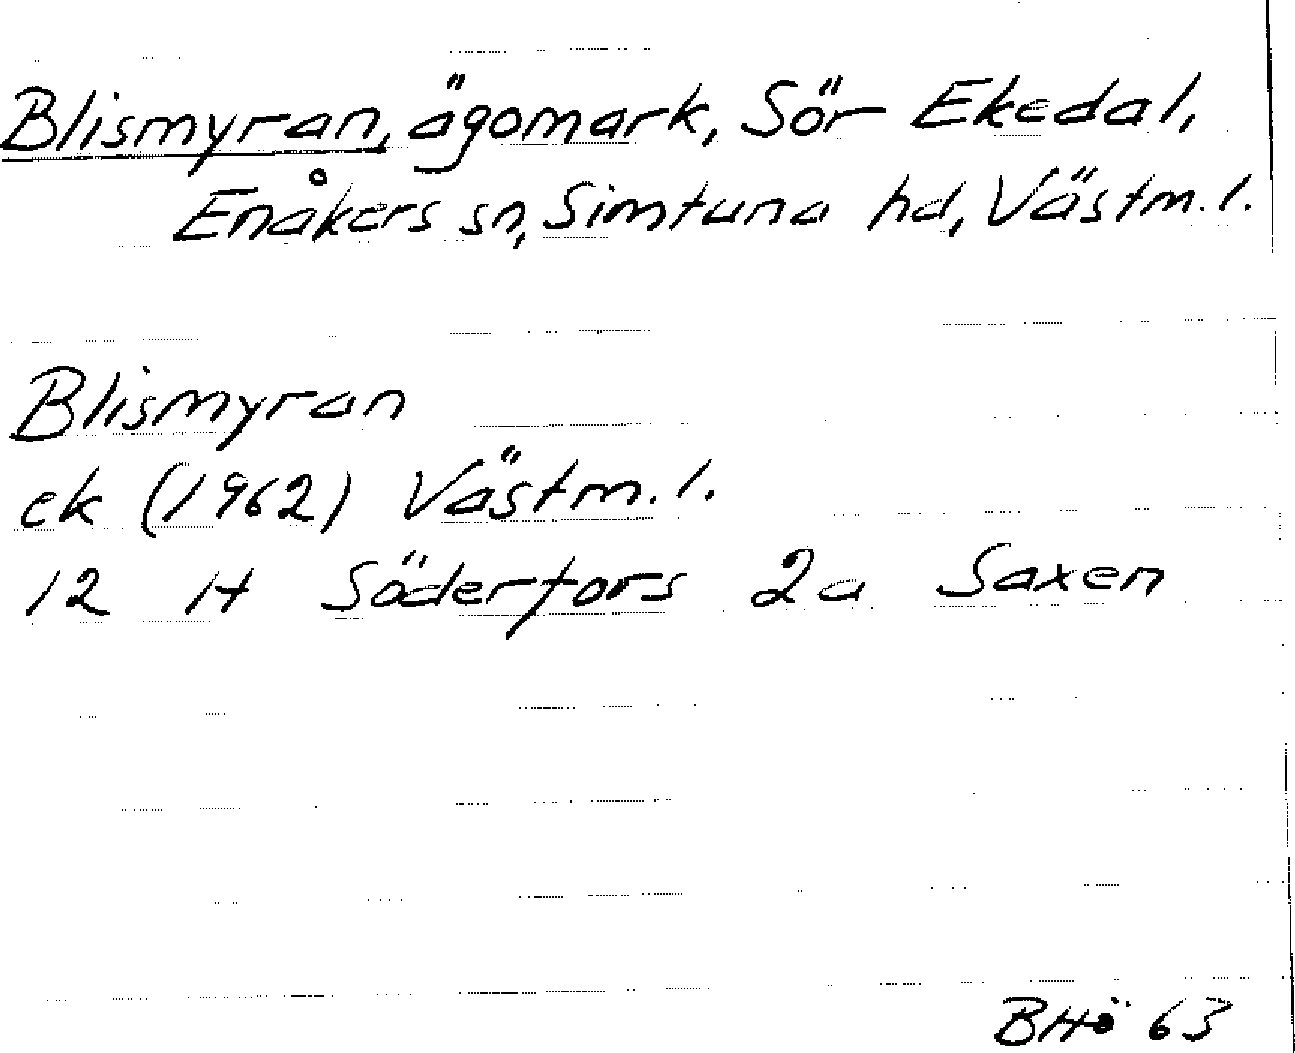 Blismyran, ägomark, Sör Ekedal,
Enåkers sn, Simtuna hd, Västm. l.
Blismyran
ek (1962) Västm. l.
12 H Söderfors 2a Saxen
BHö 63